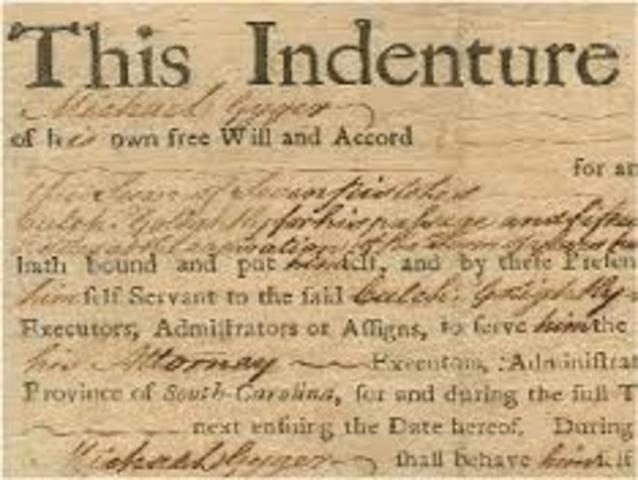 This Indenture
Michael Gyger
of his own free Will and Accord
for an
The Sum of Seven pistoles
Culch: Golightly for his passage and fifte
hath bound and put himself, and by these Presen
himself Servant to the said Culch: Golightly
Executors, Admiſtrators or Aſſigns, to ſerve him the
his Attornay Executors, Adminiſtrat
Province of South-Carolina, for and during the full T
next enſuing the Date hereof. During
Michael Gyger ſhall behave himſ